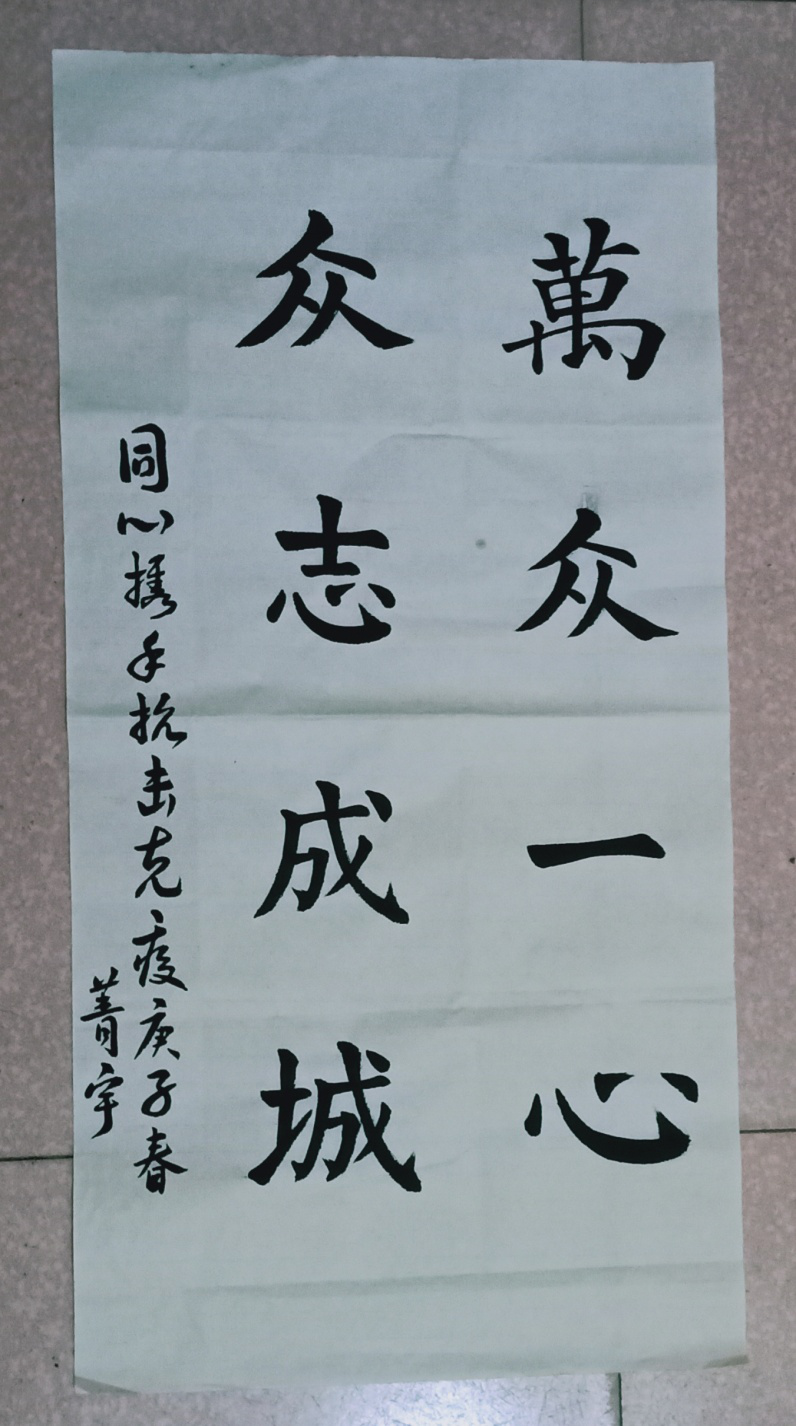 萬众一心
众志成城
同心携手抗击克疫庚子春
菁宇